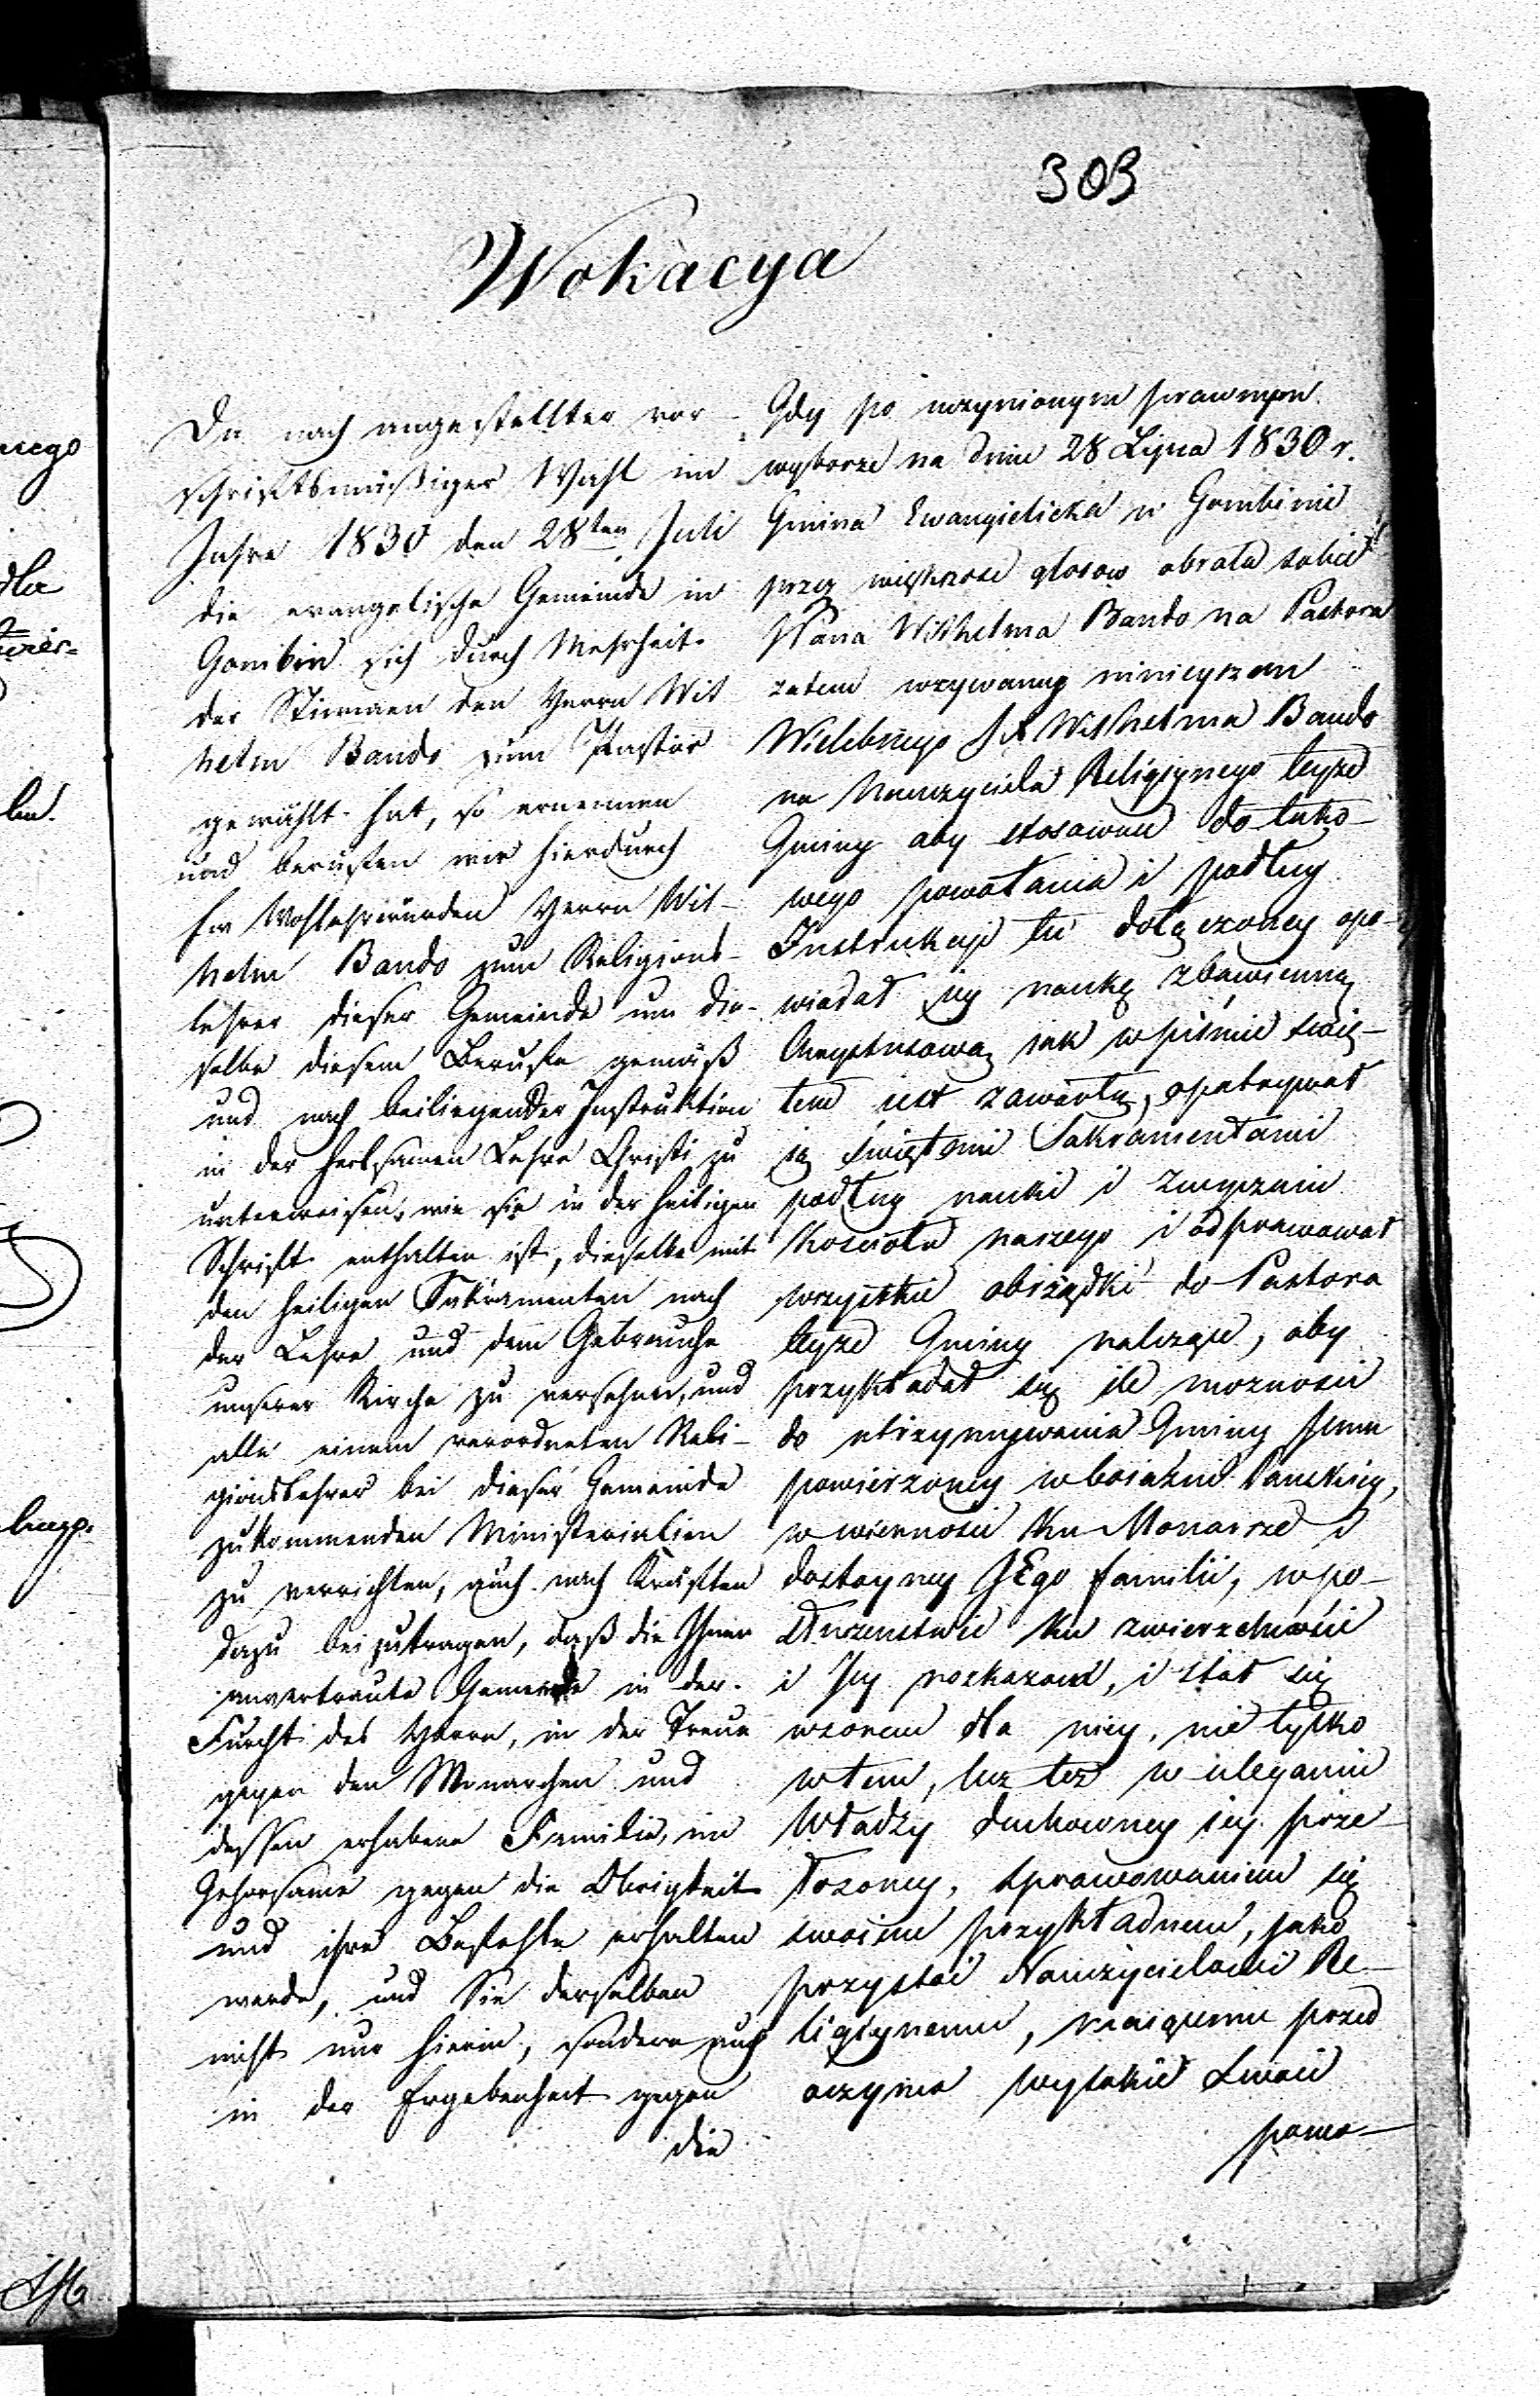 303
Wokacya
Da nach angestellter vor-
schriftsmäßiger Wahl im
Jahre 1830 den 28ten Juli
die evangelische Gemeinde in
Gombin sich durch Mehrheit
der Stimmen den Herrn Wil
helm Bando zum Pastor
gewählt hat, so ernennen
und berufen wir hierdurch
Ew Wohlehrwürden Herrn Wil-
helm Bando zum Religions-
lehrer dieser Gemeinde um die-
selbe diesem Berufe gemäß
und nach beiliegender Instruktion
in der heilsamen Lehre Christi zu
unterweisen, wie sie in der heiligen
Schrift enthalten ist, dieselbe mit
den heiligen Sakramenten nach
der Lehre und dem Gebrauche
unserer Kirche zu versehen, und
alle einem verordneten Reli-
gionslehrer bei dieser Gemeinde
zukommenden Ministerialien
zu verrichten, auch nach Kräften
dazu beizutragen, daß die Ihnen
anvertraute Gemeinde in der
Furcht des Herrn, in der Treue
gegen den Monarchen und
dessen erhabene Familie, im
Gehorsame gegen die Obrigkeit
und ihre Befehle erhalten
werde, und Sie derselben
nicht nur hierin, sondern auch
in der Ergebenheit gegen
die
Gdy po uczynionym prawnym
wyborze na dniu 28 Lipca 1830 r.
Gmina Ewangielicka w Gombinie
przez większosc głosow obrała sobie
Pana Wilhelma Bando na Pastora
zatem wzywamy ninieyszem
Wielebnego JX Wilhelma Bando
na Nauczyciela Religijnego teyze
Gminy aby stosownie do tako-
wego powołania i podług
Instrukcyi tu dołączoney opo-
wiadał jey naukę zbawienną
Chrystusową jak w piśmie świę-
tem jest zawarta, opatrywał
ją świętemi Sakramentami
podług nauki i zwyczaiu
Kościoła naszego i odprawował
wszystkie obrządki do Pastora
teyze Gminy nalezące, aby
przykładał się ile moznosci
do utrzymywania Gminy Jemu
powierzoney w boiaźni Panskiey,
w wiernosci ku Monarsze i
dostoyney JEgo familii, w po-
słuszenstwie ku zwierzchności
i Jey rozkazom, i stał się
wzorem dla niey, nie tylko
w tem, lecz tez w uleganiu
Władzy duchowney jey prze-
łozoney, sprawowaniem się
swoiem przykładnem, jako
przystoi Nauczycielowi Re-
ligiynemu, maiącemu przed
oczyma wysokie Swoie
powo-